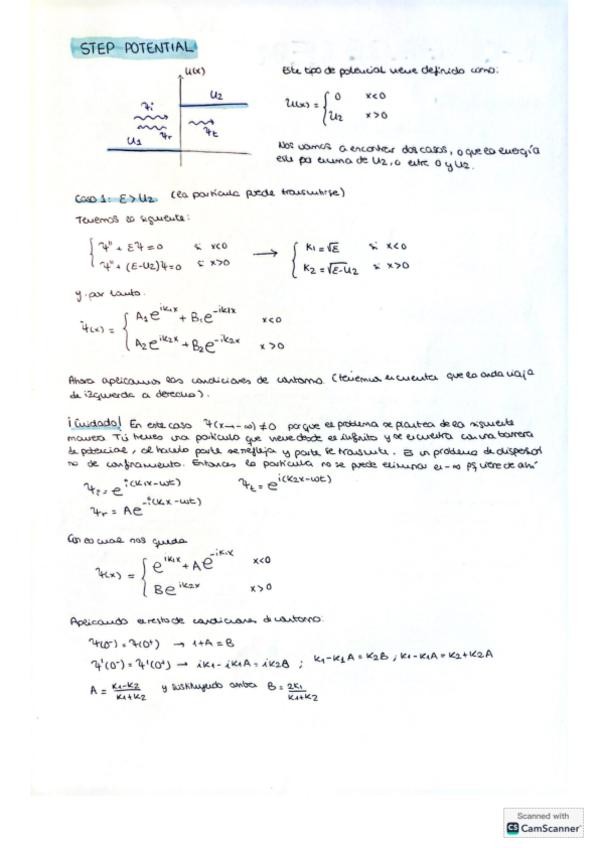 STEP POTENTIAL
U(x)
U2
ψi
ψr
ψt
U1
Este tipo de potencial viene definido como:
U(x) = { 0 x<0
U2 x>0
Nos vamos a encontrar dos casos, o que la energía
esté por encima de U2, o entre 0 y U2.
Caso 1: E>U2 (la partícula puede transmitirse)
Tenemos lo siguiente:
{ ψ'' + Eψ = 0 si x<0 → { K1 = √E si x<0
ψ'' + (E-U2)ψ = 0 si x>0 K2 = √E-U2 si x>0
y por tanto.
ψ(x) = { A1 e^iK1x + B1 e^-iK1x x<0
A2 e^iK2x + B2 e^-iK2x x>0
Ahora aplicamos las condiciones de contorno (tenemos en cuenta que la onda viaja
de izquierda a derecha).
¡Cuidado! En este caso ψ(x→-∞) ≠ 0 porque el problema se plantea de la siguiente
manera. Tú tienes una partícula que viene desde el infinito y se encuentra con una barrera
de potencial, al hacerlo parte se refleja y parte se transmite. Es un problema de dispersión
no de confinamiento. Entonces la partícula no se puede eliminar el -∞ pq viene de ahí
ψi = e^i(K1x-wt) ψt = e^i(K2x-wt)
ψr = Ae^-i(K1x-wt)
Con lo cual nos queda
ψ(x) = { e^iK1x + Ae^-iK1x x<0
Be^iK2x x>0
Aplicando el resto de condiciones d contorno:
ψ(0⁻) = ψ(0⁺) → 1+A = B
ψ'(0⁻) = ψ'(0⁺) → iK1 - iK1A = iK2B ; K1-K1A = K2B ; K1-K1A = K2+K2A
A = K1-K2/K1+K2 y sustituyendo B = 2K1/K1+K2
Scanned with
CS CamScanner